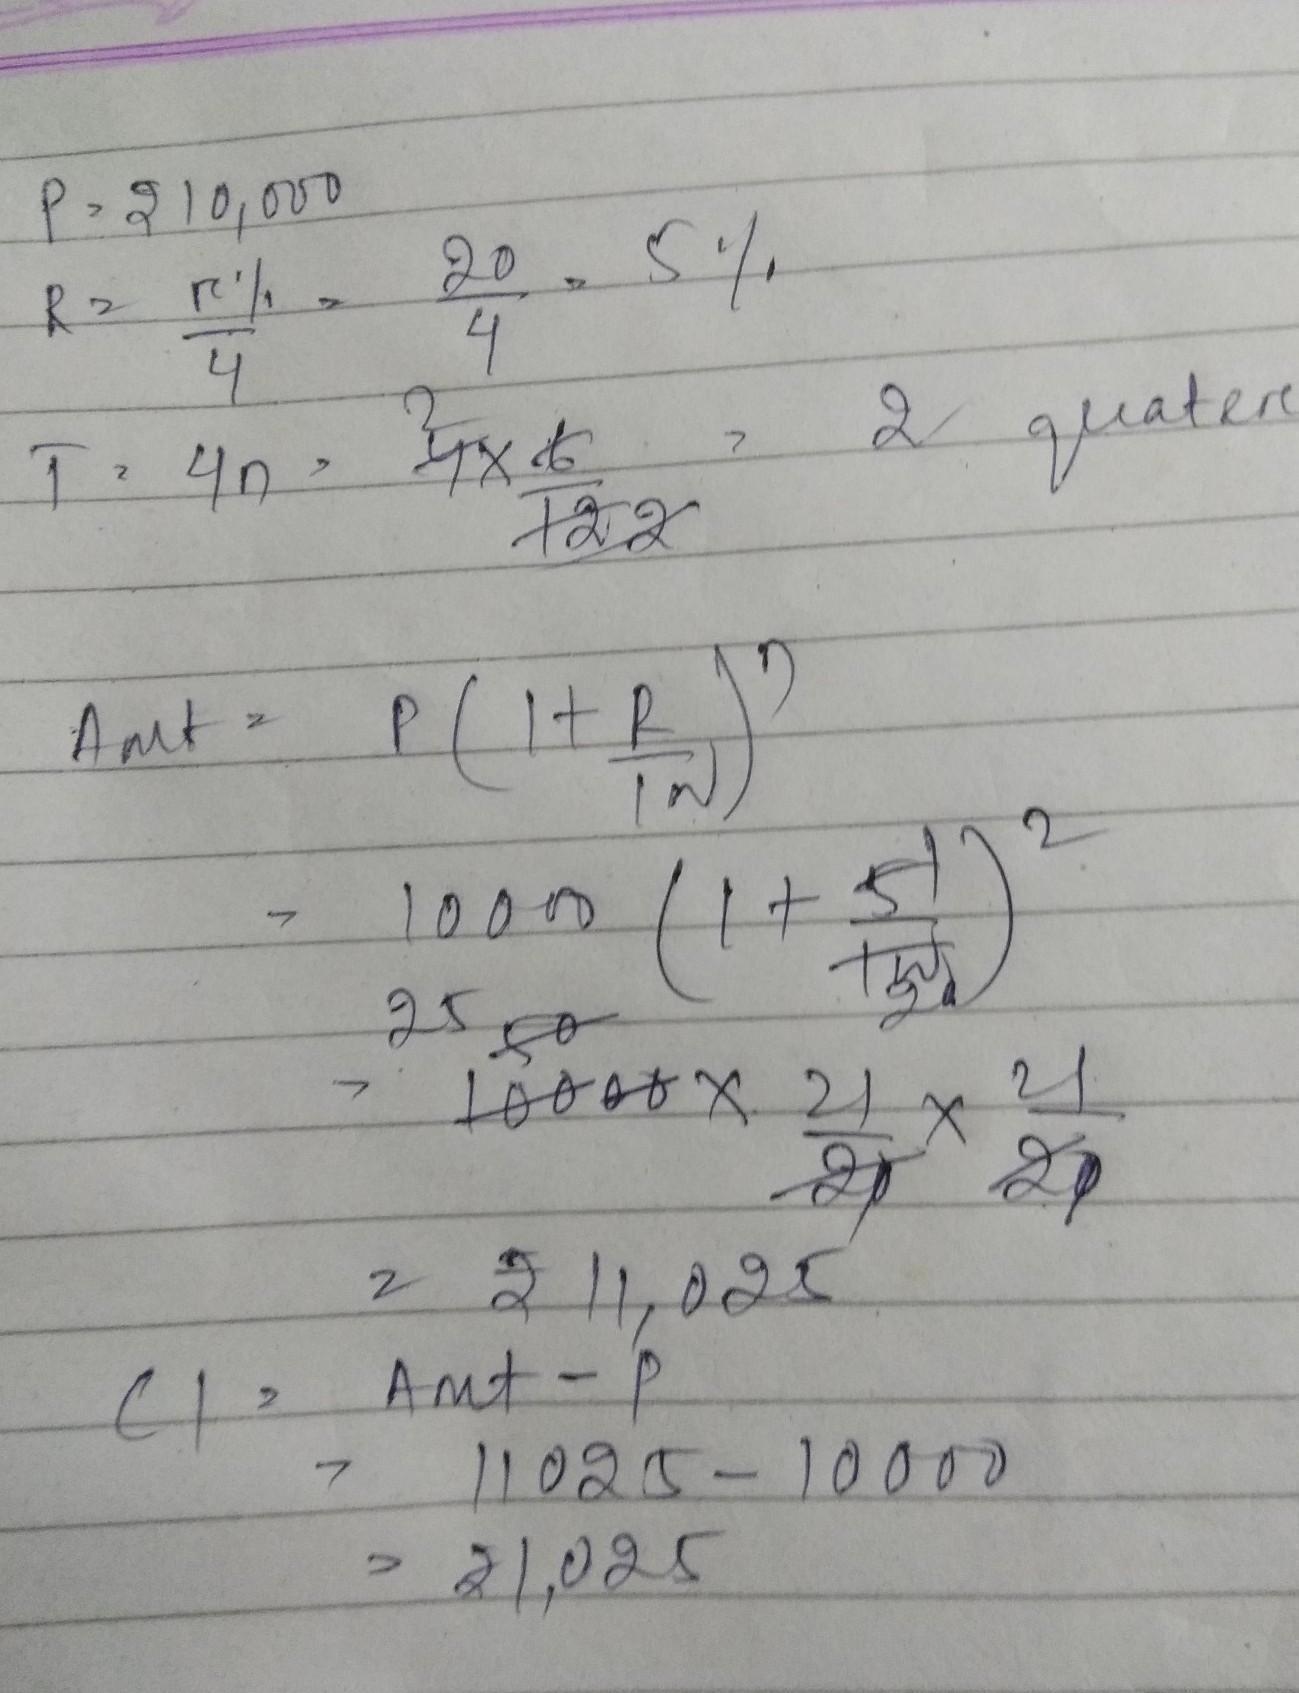 P = ₹10,000
R = r%/4 = 20/4 = 5%
T = 4n = 4 × 6/12 2 = 2 quatere
Amt = P(1 + R/100)^n
= 10000 (1 + 5/100)^2
25 50
= 10000 × 21/20 × 21/20
= ₹11,025
CI = Amt - P
= 11025 - 10000
= ₹1,025